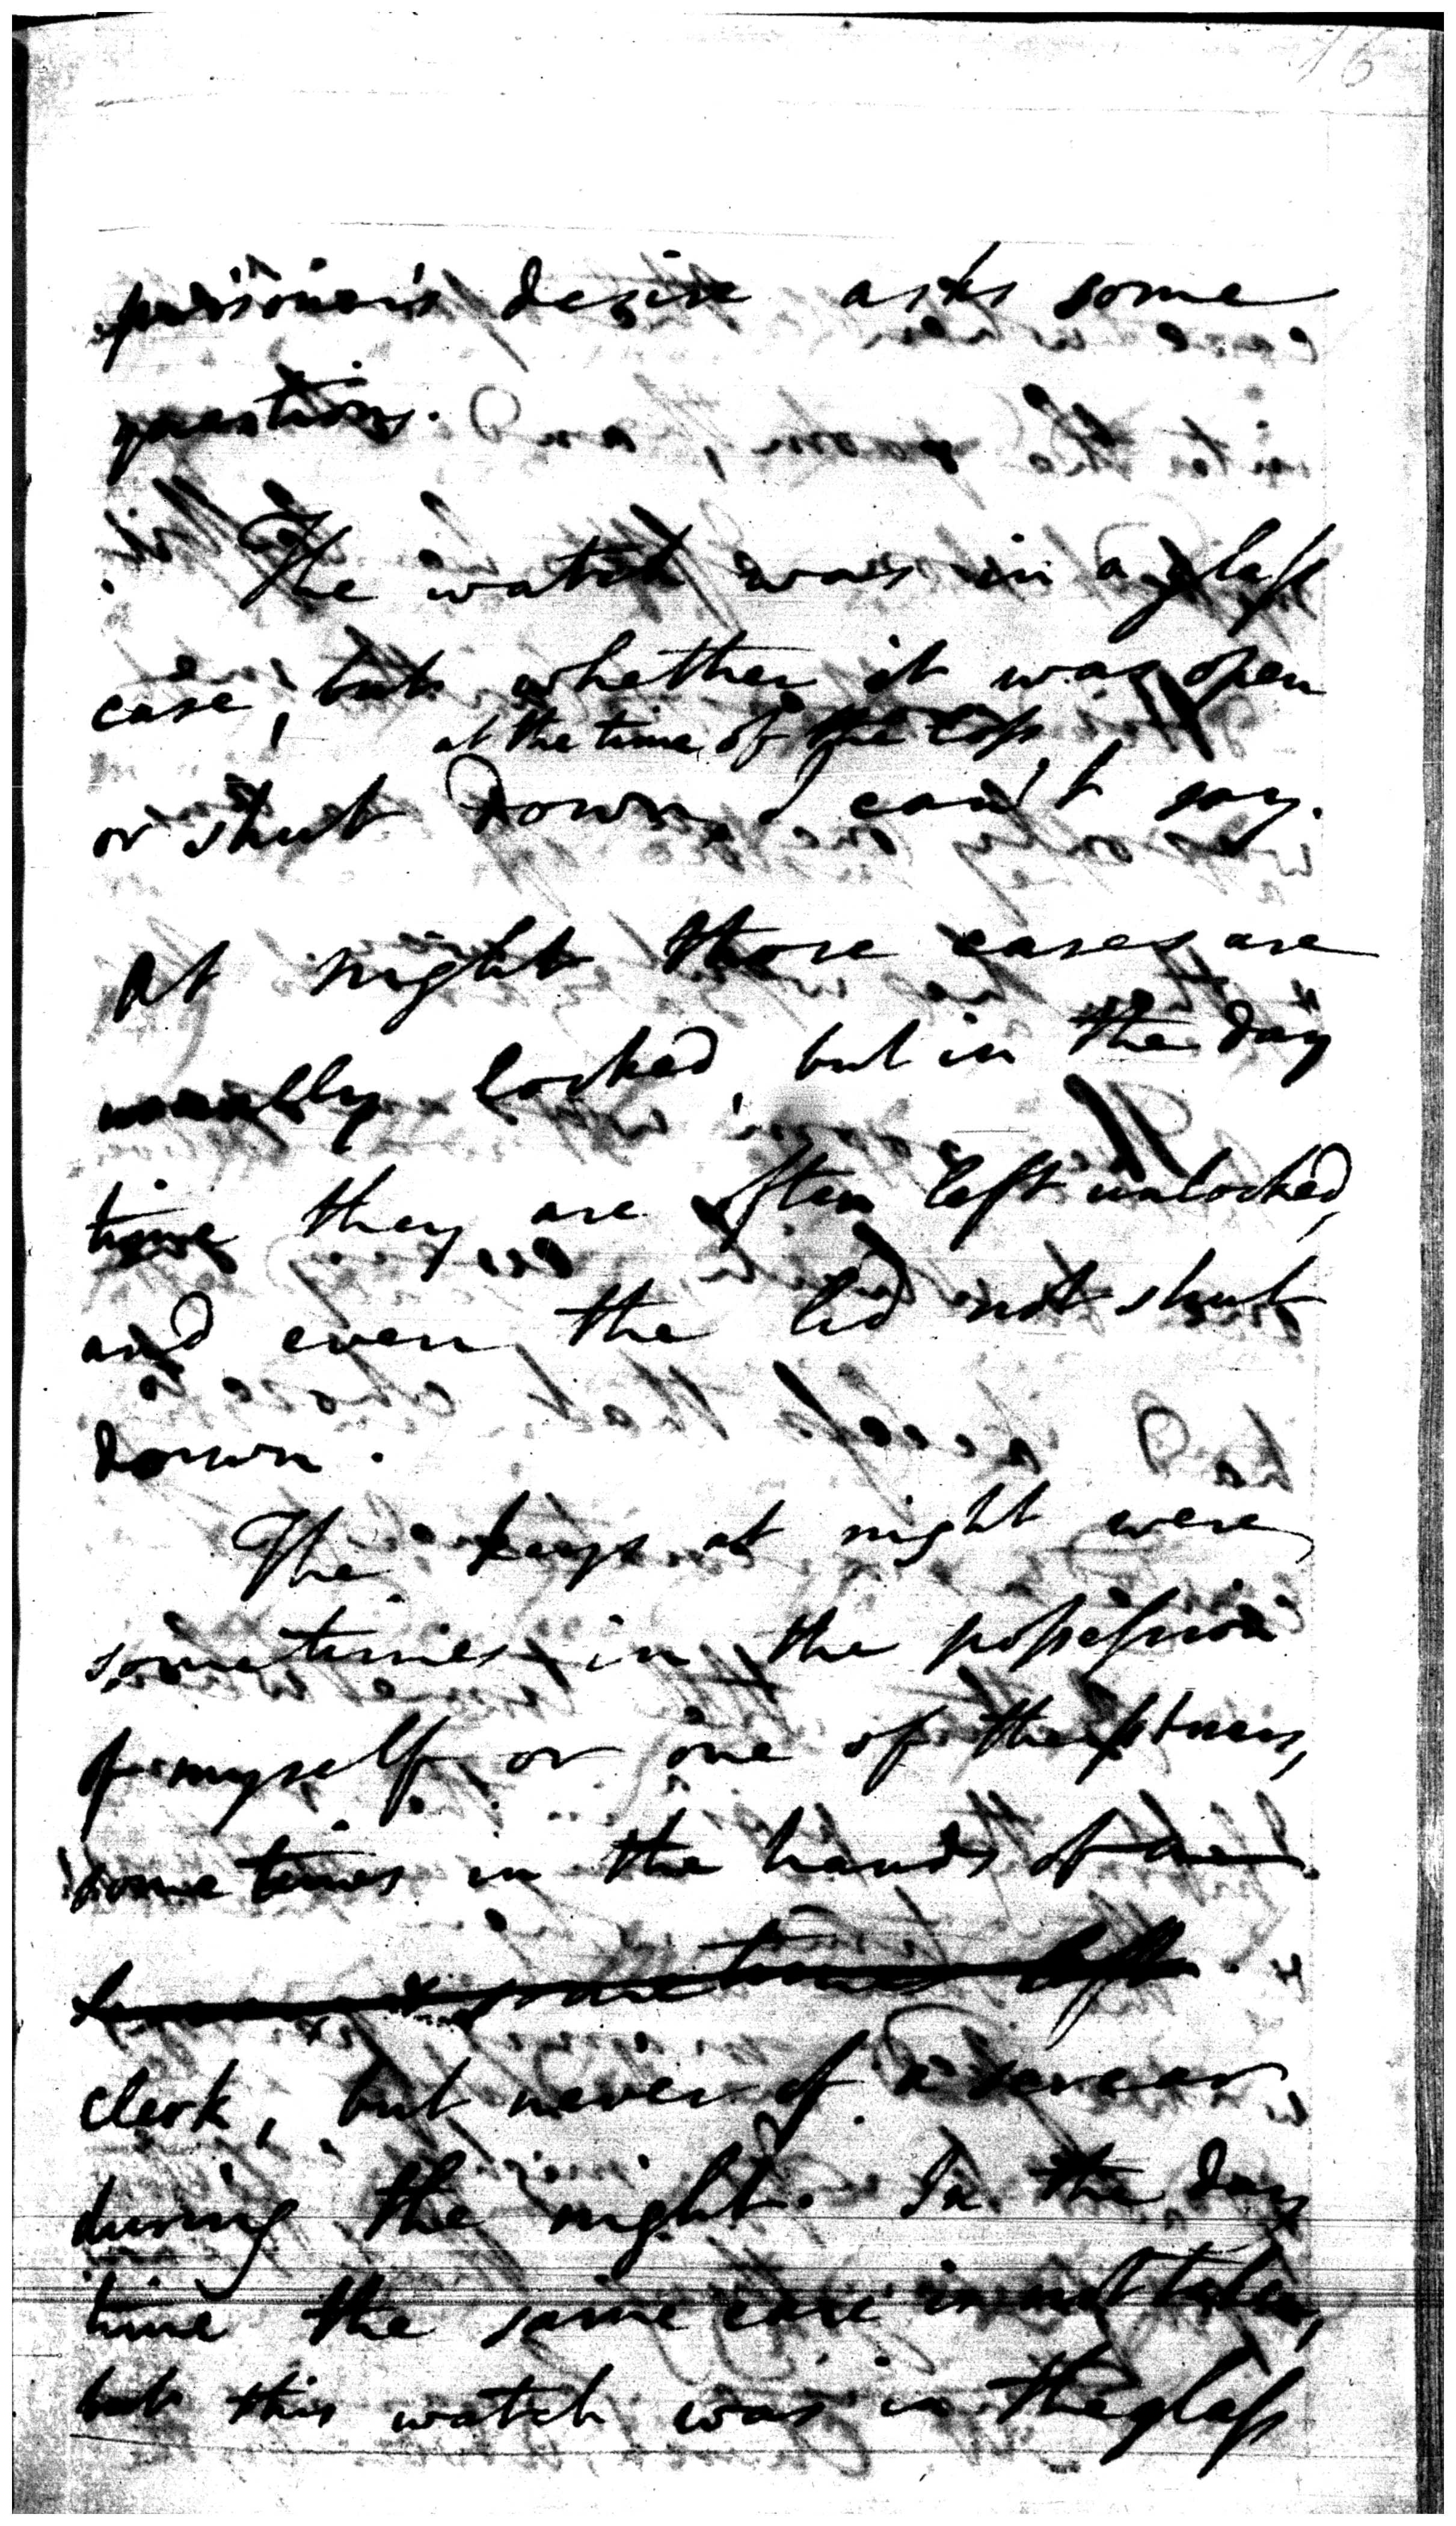 16
prisoner's desire asks some
questions.
The watch was in a glass
case, but whether it was open
at the time of the loss
or shut down, I can't say.
At night those cases are
usually locked, but in the day
time they are often left unlocked,
and even the lid not shut
down.
The keys at night were
sometimes in the possession
of myself or one of the
sometimes in the hands of
sometimes left
clerk, but never of a
during the night. In the day
time the same care is not taken,
but this watch was in the glass